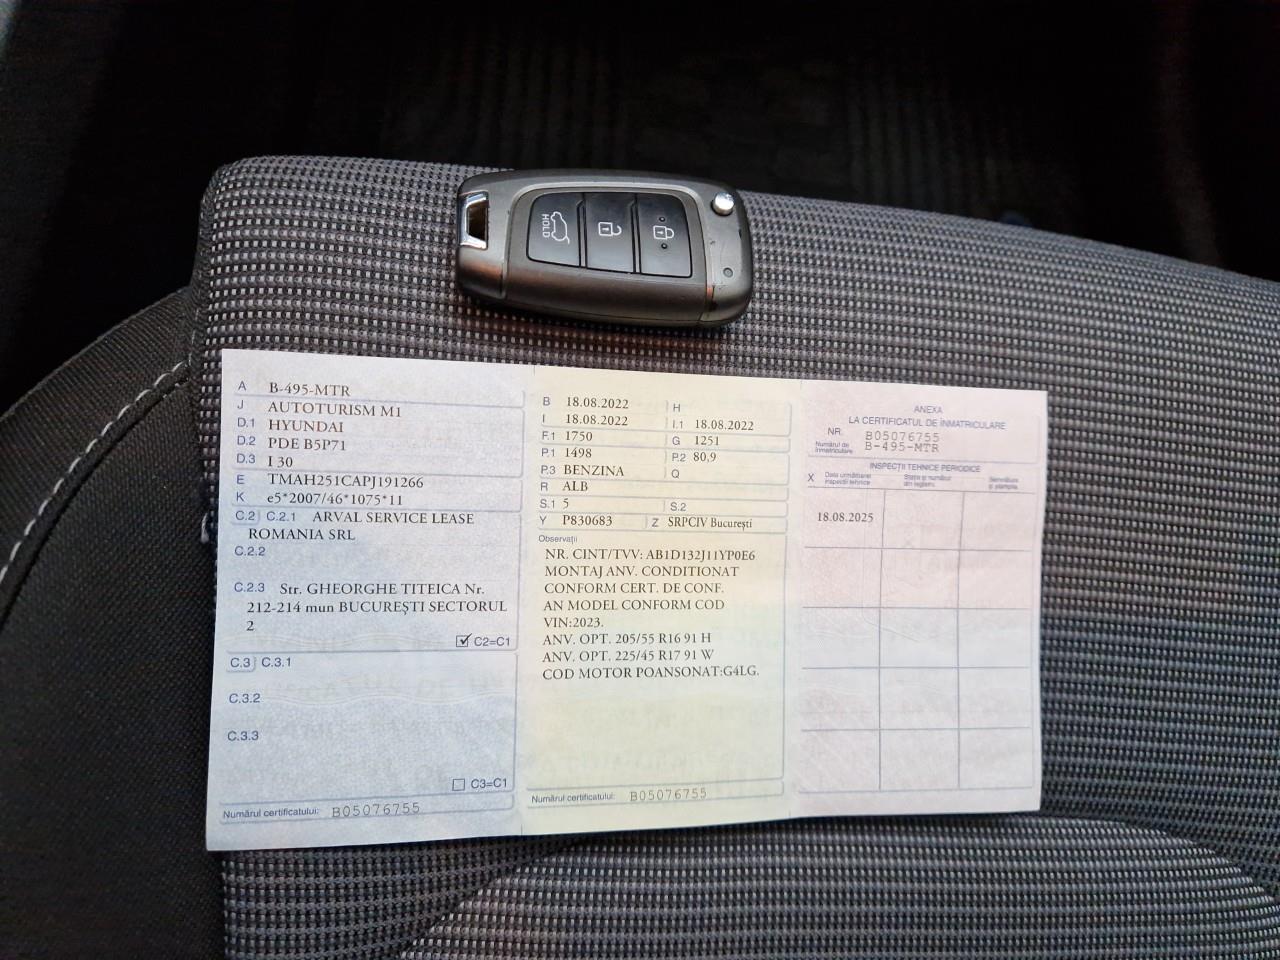 HOLD
A B-495-MTR
J AUTOTURISM M1
D.1 HYUNDAI
D.2 PDE B5P71
D.3 I 30
E TMAH251CAPJ191266
K e5*2007/46*1075*11
C.2 C.2.1 ARVAL SERVICE LEASE
ROMANIA SRL
C.2.2
C.2.3 Str. GHEORGHE TITEICA Nr.
212-214 mun BUCUREȘTI SECTORUL
2
C2=C1
C.3 C.3.1
C.3.2
C.3.3
C3=C1
Numărul certificatului: B05076755
B 18.08.2022 H
I 18.08.2022 I.1 18.08.2022
F.1 1750 G 1251
P.1 1498 P.2 80,9
P.3 BENZINA Q
R ALB
S.1 5 S.2
Y P830683 Z SRPCIV București
Observații
NR. CINT/TVV: AB1D132J11YP0E6
MONTAJ ANV. CONDITIONAT
CONFORM CERT. DE CONF.
AN MODEL CONFORM COD
VIN:2023.
ANV. OPT. 205/55 R16 91 H
ANV. OPT. 225/45 R17 91 W
COD MOTOR POANSONAT:G4LG.
Numărul certificatului: B05076755
ANEXA
LA CERTIFICATUL DE ÎNMATRICULARE
NR. B05076755
Numărul de
înmatriculare B-495-MTR
INSPECȚII TEHNICE PERIODICE
X Data următoarei
inspecții tehnice
Stația și numărul
din registru
Semnătura
și ștampila
18.08.2025